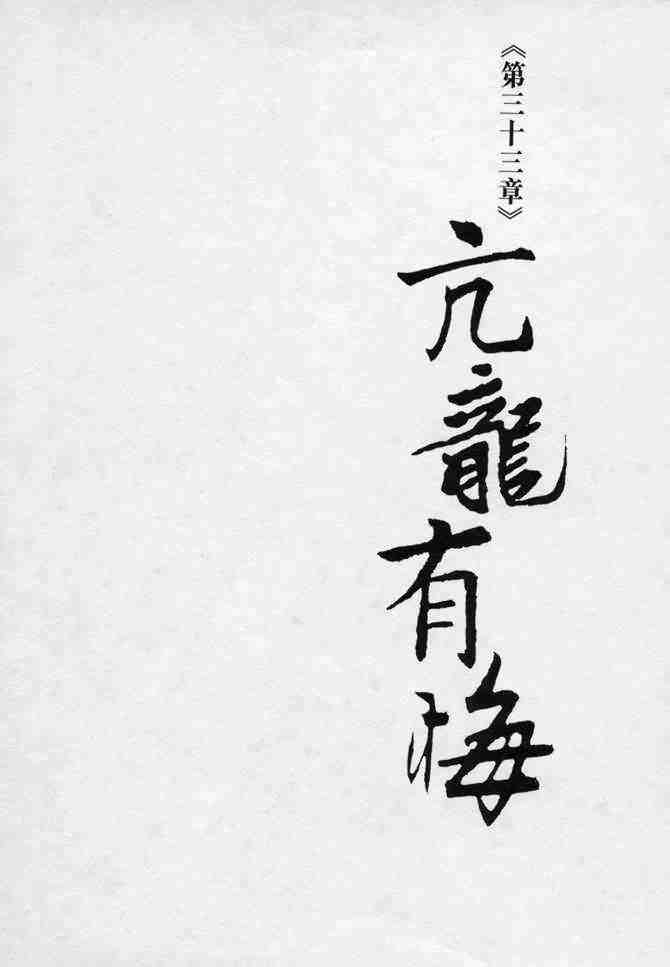 《第三十三章》
亢龍有悔